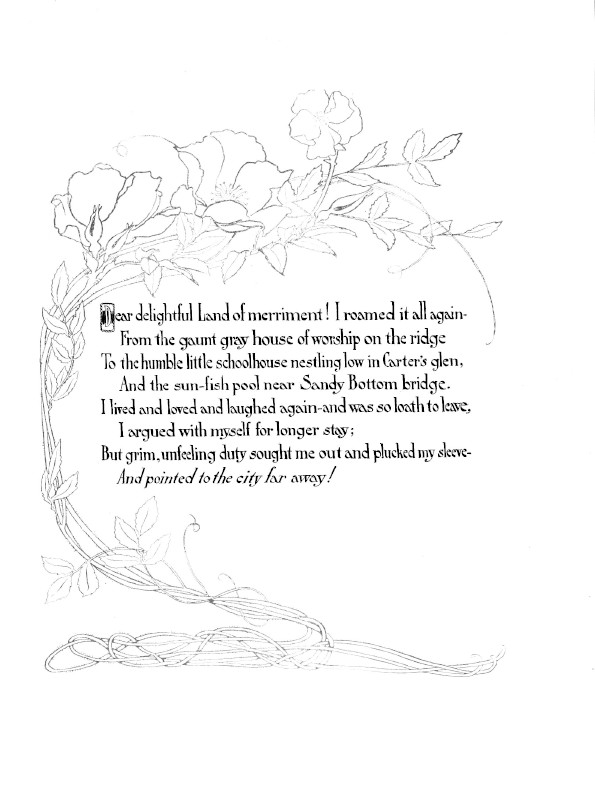 Dear delightful Land of merriment! I roamed it all again-
From the gaunt gray house of worship on the ridge
To the humble little schoolhouse nestling low in Carter's glen,
And the sun-fish pool near Sandy Bottom bridge.
I lived and loved and laughed again-and was so loath to leave,
I argued with myself for longer stay;
But grim, unfeeling duty sought me out and plucked my sleeve-
And pointed to the city far away!